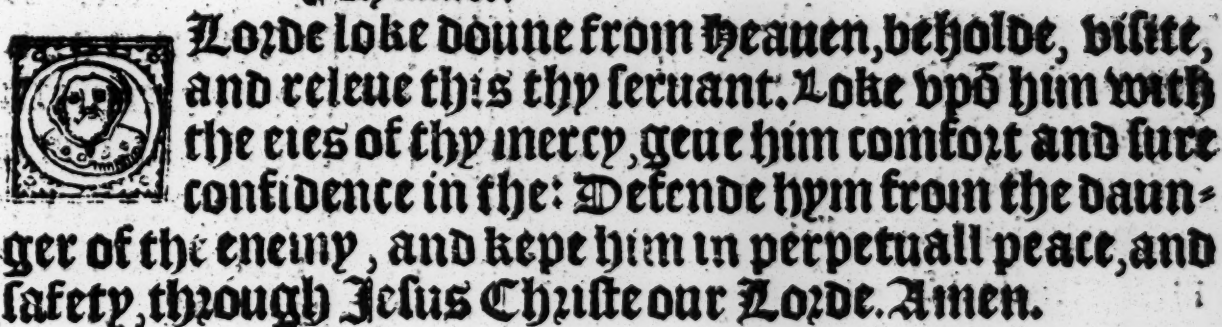 O Lorde loke doune from heauen, beholde, visite,
and releue this thy seruant. Loke vpõ him with
the eies of thy mercy, geue him comfort and sure
confidence in the: Defende hym from the daun-
ger of the enemy, and kepe him in perpetuall peace, and
safety, through Jesus Christe our Lorde. Amen.